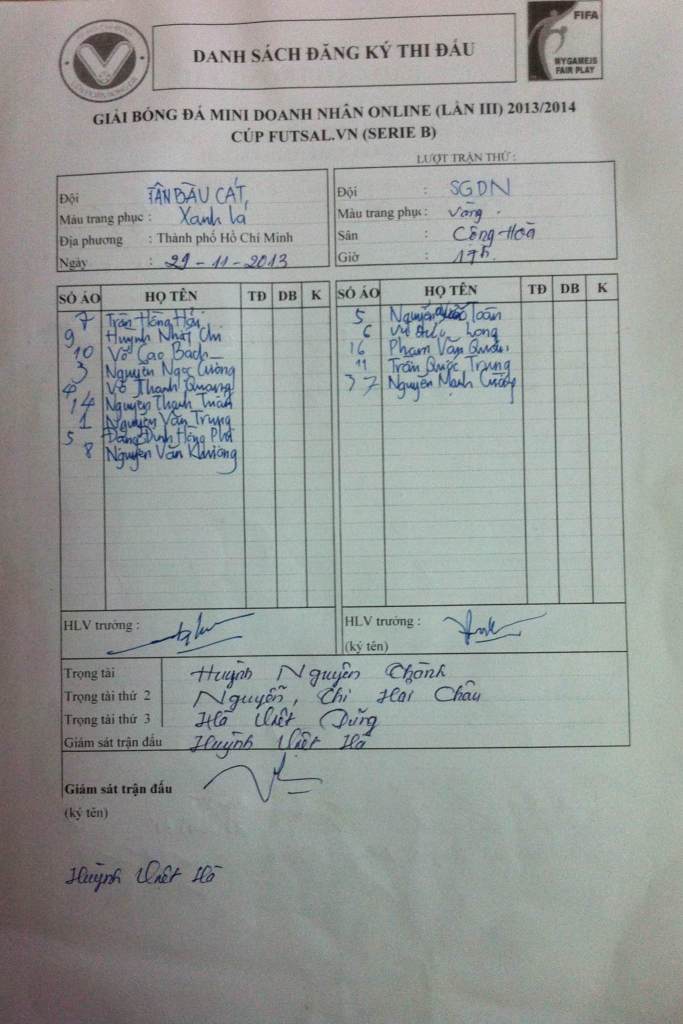 DANH SÁCH ĐĂNG KÝ THI ĐẤU
FIFA
MY GAME IS
FAIR PLAY
GIẢI BÓNG ĐÁ MINI DOANH NHÂN ONLINE (LẦN III) 2013/2014
CÚP FUTSAL.VN (SERIE B)
LƯỢT TRẬN THỨ :
Đội TÂN BÀU CÁT
Màu trang phục : Xanh lá
Địa phương : Thành phố Hồ Chí Minh
Ngày : 29-11-2013
Đội : SGDN
Màu trang phục : vàng
Sân : Cộng Hoà
Giờ : 17h
SỐ ÁO HỌ TÊN TĐ DB K
7 Trần Hồng Hải
9 Huỳnh Nhất Chi
10 Võ Cao Bách
3 Nguyễn Ngọc Cường
Võ Thanh Quang
14 Nguyễn Thanh Tuấn
1 Nguyễn Văn Trung
5 Đặng Đình Hồng Phi
8 Nguyễn Văn Khương
SỐ ÁO HỌ TÊN TĐ DB K
5 Nguyễn Toàn
6 Vũ Đức Long
16 Phạm Văn Quân
11 Trần Quốc Trung
37 Nguyễn Mạnh Cường
HLV trưởng :
HLV trưởng :
(ký tên)
Trọng tài Huỳnh Nguyên Chành
Trọng tài thứ 2 Nguyễn, Chi Hải Châu
Trọng tài thứ 3 Hồ Việt Dũng
Giám sát trận đấu Huỳnh Việt Hà
Giám sát trận đấu
(ký tên)
Huỳnh Việt Hà